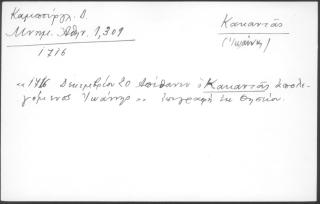 Καμπούρογλ. Δ.
Μνημ. Ἀθην. 1,301
1716
Κακαντᾶς
(Ἰωάννης)
«1716 Δεκεμβρίου 20 Ἀπέθανεν ὁ Κακαντᾶς ἐπιλε-
γόμενος Ἰωάννης» Ἐπιγραφὴ ἐκ Θησείου.